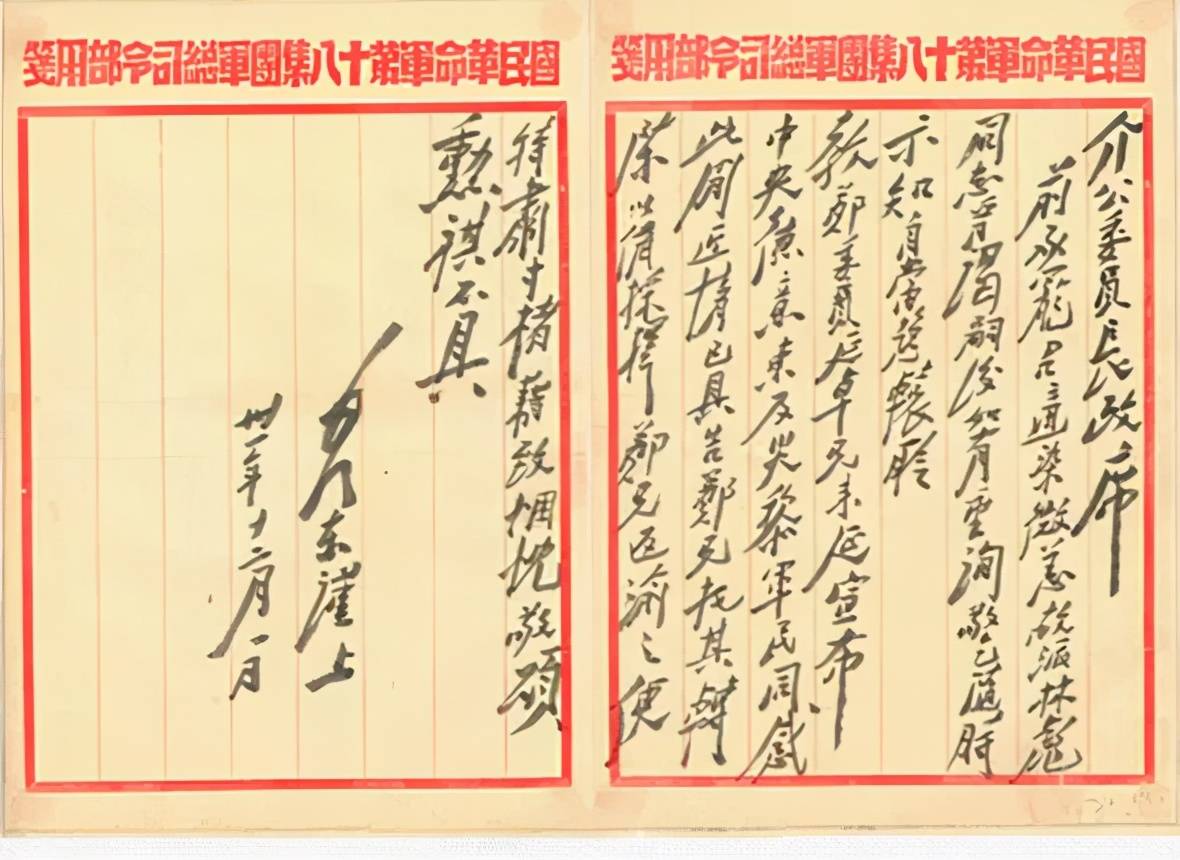 國民革命軍第十八集團軍總司令部用箋
介公委員長政席
前承寵召適染微恙故派林彪
同志晉謁嗣後如有垂詢敬乞隨時
示知自當趨轅聆
教鄭委員延卓兄來延宣布
中央德意東反災黎軍民同感
此間近情已具告鄭兄托其轉
陳以備採擇鄭兄返渝之便
國民革命軍第十八集團軍總司令部用箋
特肅寸楮藉致悃忱敬頌
勳祺不具
毛澤東謹上
卅一年十二月一日